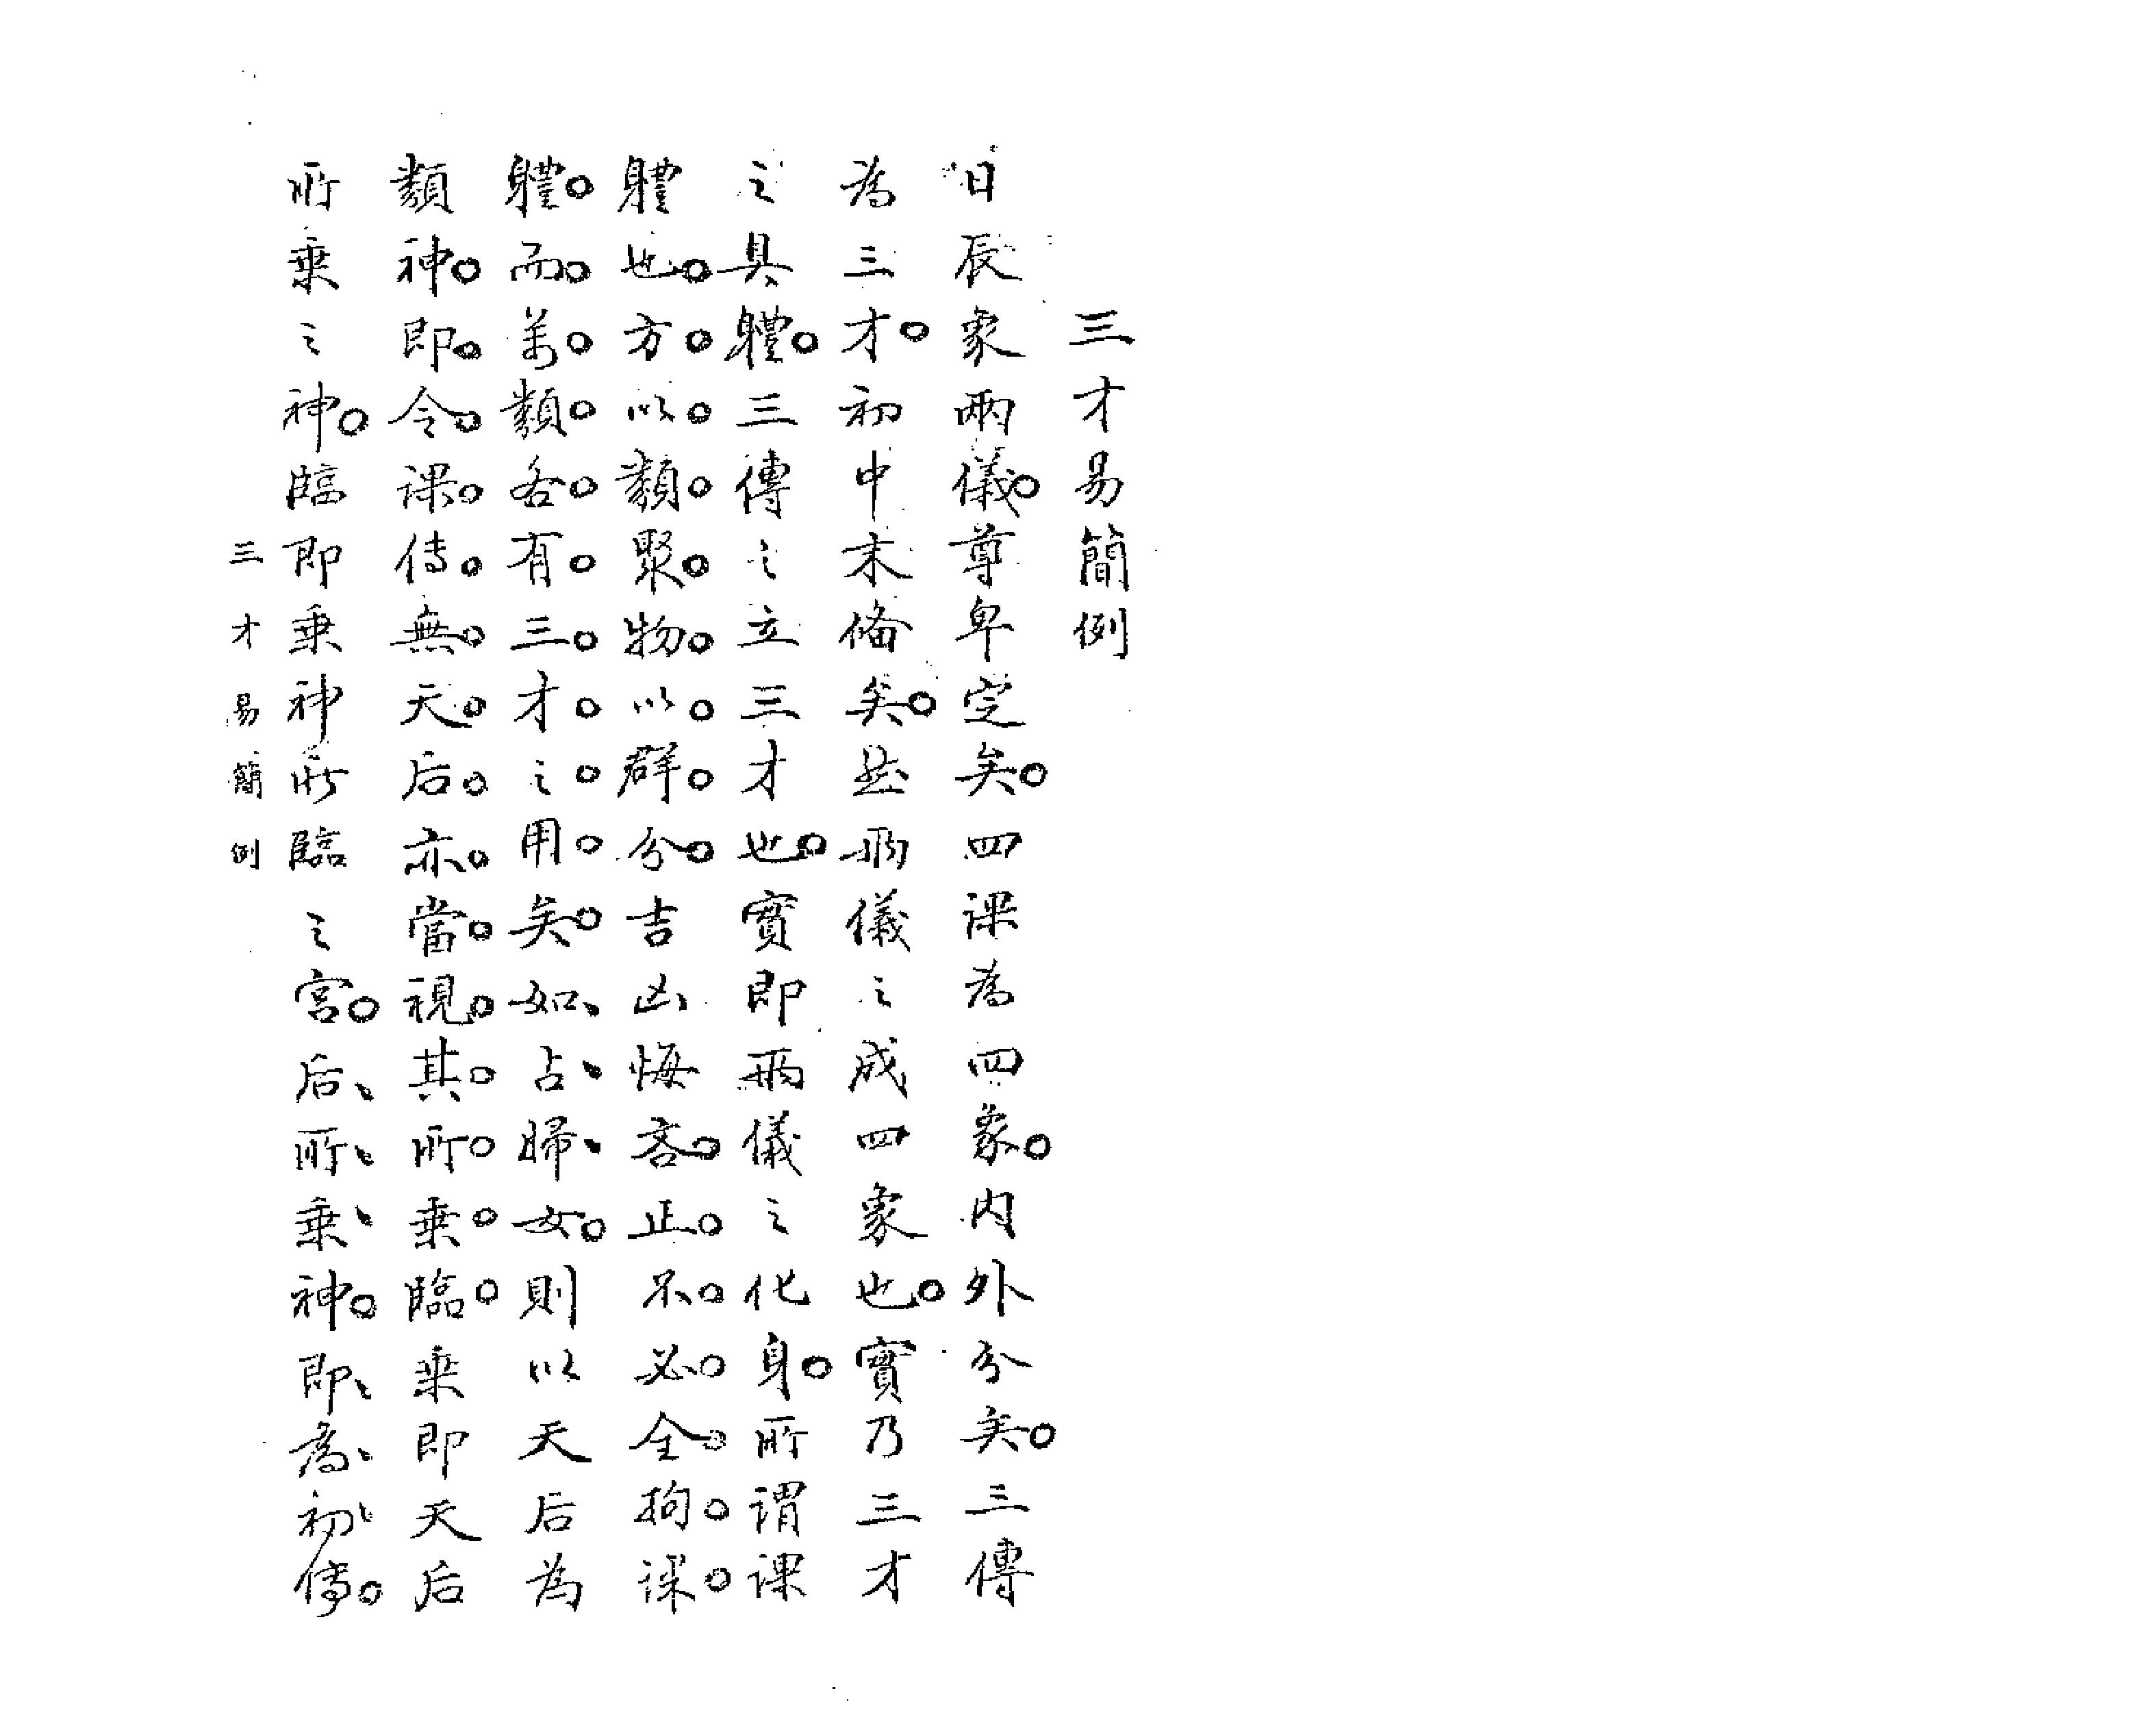 三才易簡例
日辰象兩儀。尊卑定矣。四課為四象。內外分矣。三傳
為三才。初中末俻矣。然兩儀之成四象也。實乃三才
之具軆。三傳之立三才也。實即兩儀之化身。所謂課
軆也。方。以。類。聚。物。以。群。分。吉凶悔吝。正。不。必。全。拘。課。
軆。而。萬。類。各。有。三。才。之。用。矣。如、占、婦、女。則以天后為
類神。即。令。課。传。無。天。后。亦。當。視。其。所。乘。臨。乘即天后
所乘之神。臨即乘神所臨之宮。后、所、乘、神。即、為、初、傳。
三才易簡例